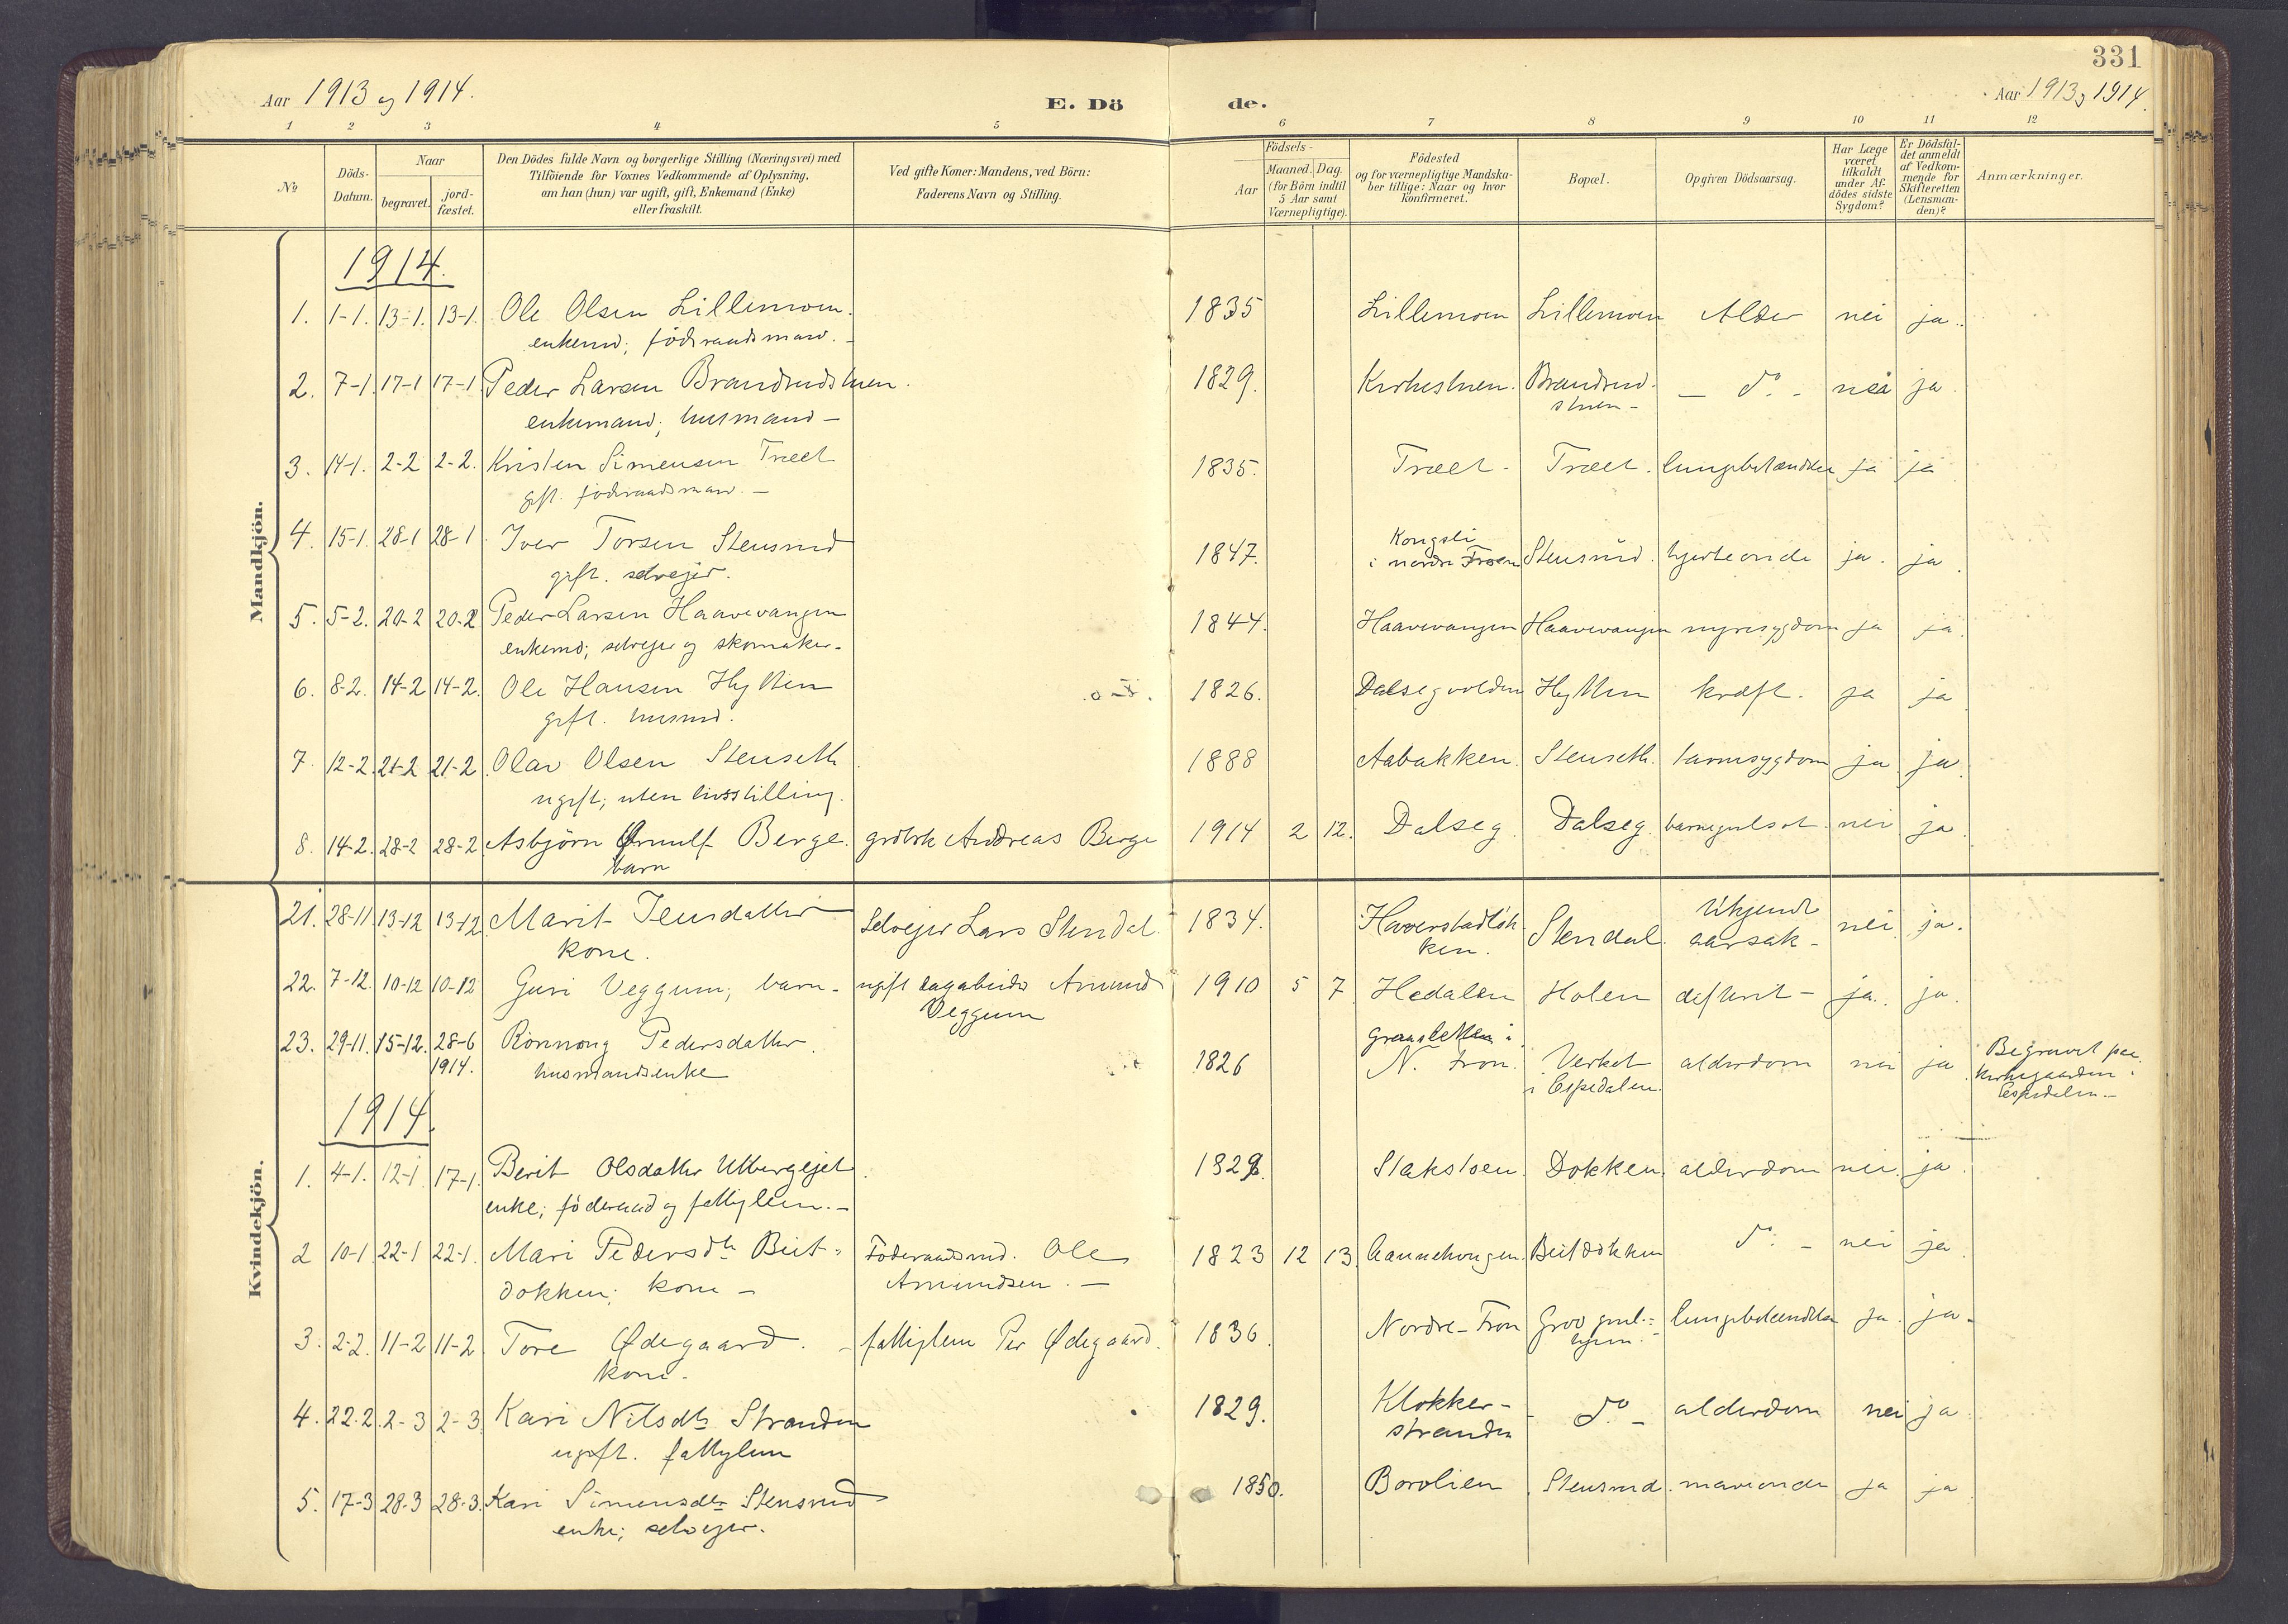 331
Aar 1913 og 1914.
E. Dö de.
Aar 1913 og 1914.
1 2 3 4 5 6 7 8 9 10 11 12
№
Döds-Datum.
Naar
begravet.
jord-fæstet.
Den Dödes fulde Navn og borgerlige Stilling (Næringsvei) med
Tilföiende for Voxnes Vedkommende af Oplysning,
om han (hun) var ugift, gift, Enkemand (Enke)
eller fraskilt.
Ved gifte Koner: Mandens, ved Börn:
Faderens Navn og Stilling.
Födsels-
Aar
Maaned. Dag.
(for Börn indtil
5 Aar samt
Værnepligtige).
Födested
og for værnepligtige Mandska-
ber tillige: Naar og hvor
konfirmeret.
Bopæl.
Opgiven Dödsaarsag.
Har Læge
været
tilkaldt
under Af-
dödes sidste
Sygdom?
Er Dödsfal-
det anmeldt
af Vedkom-
mende for
Skifteretten
(Lensman-
den)?
Anmærkninger.
Mandkjön.
1914.
1. 1-1. 13-1. 13-1. Ole Olsen Lillemoen. 1835 Lillemoen Lillemoen Alder nei ja.
enkemd; föderaadsmand.
2. 7-1. 17-1 17-1 Peder Larsen Brandrudstuen. 1829. Kirkestuen. Brandrud- - do. - nei ja
enkemand; husmand - stuen -
3. 14-1. 2-2 2-2. Kristen Simensen Træet 1835. Træet. Træet. lungebetændelse ja ja
gift. föderaadsmand. -
4. 15-1. 28-1 28-1 Iver Torsen Stensrud 1847. Kongsli
i nordre Fron Stensrud. hjerteonde ja. ja.
gift. selvejer.
5. 5-2. 20-2 20-2 Peder Larsen Haavevangen 1844. Haavevangen Haavevangen nyresygdom ja ja.
enkemd; selvejer og skomaker.
6. 8-2. 14-2 14-2. Ole Hansen Hytten 1826. Dalsegvolden Hytten kræft. ja ja
gift. husmd.
7. 12-2. 21-2 21-2 Olav Olsen Stenseth 1888 Aabakken. Stenseth. tarmsygdom ja ja.
ugift; uten livsstilling.
8. 14-2. 28-2 28-2 Asbjörn Ørnulf Berge. grdbrk Andreas Berge 1914 2 12. Dalseg. Dalseg. barnegulsot. nei ja.
barn
Kvindekjön.
21. 28-11 13-12 13-12 Marit Jensdatter Selvejer Lars Stendal. 1834. Haverstadløk- Stendal. Ukjendt nei ja.
kone. ken. aarsak -
22. 7-12. 10-12 10-12 Guri Veggum; barn - ugift dagarbeider Amund 1910 5 7 Hedalen Holen difterit - ja. ja.
Veggum
23. 29-11. 15-12. 28-6 Rönnoug Pedersdatter. 1826 i
1914. husmandsenke N. Fron. Verket alderdom nei ja
i Espedalen.
Begravet paa
kirkegaarden i
Espedalen. -
1914.
1. 4-1. 12-1 17-1. Berit Olsdatter Utbergejet. 1829. Slakstoen. Dokken. alderdom nei. ja.
enke; föderaad og fattiglem. -
2 10-1 22-1 22-1. Mari Pedersdtr Beit- Föderaadsmd. Ole 1823 12 13. Beitdokken do. - nei ja.
dokken; kone - Amundsen. -
3. 2-2. 11-2 11-2 Tore Ødegaard. - fattiglem Per Ødegaard. 1836. Nordre-Fron lungebetændelse ja. ja.
kone.
4. 22-2. 2-3 2-3 Kari Nilsdtr Stranden 1829. Klokker- - do - alderdom nei ja
ugift. fattiglem stranden
5. 17-3 28-3 28-3. Kari Simensdtr Stensrud 1850. Borolien Stensrud. maveonde ja ja
enke; selvejer.